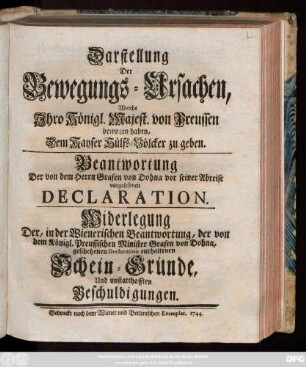 Darstellung
Der
Bewegungs-Ursachen,
Welche
Ihro Königl. Majest. von Preussen
bewogen haben,
Dem Kayser Hülfs-Völcker zu geben.
Beantwortung
Der von dem Herrn Grafen von Dohna vor seiner Abreise
DECLARATION.
Widerlegung
Der, in der Wienerischen Beantwortung, der von
dem Königl. Preussischen Minister Grafen von Dohna,
geschehenen Declaration enthaltenen
Schein-Gründe,
Und unstatthafften
Beschuldigungen.
Gedruckt nach dem Wiener und Berlinischen Exemplar. 1744.